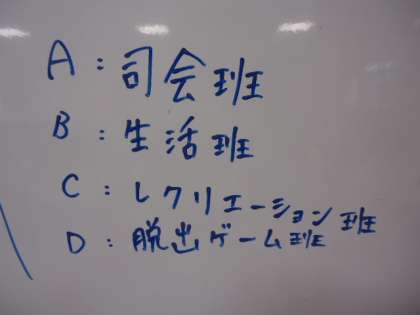 A：司会班
B：生活班
C：レクリエーション班
D：脱出ゲーム班